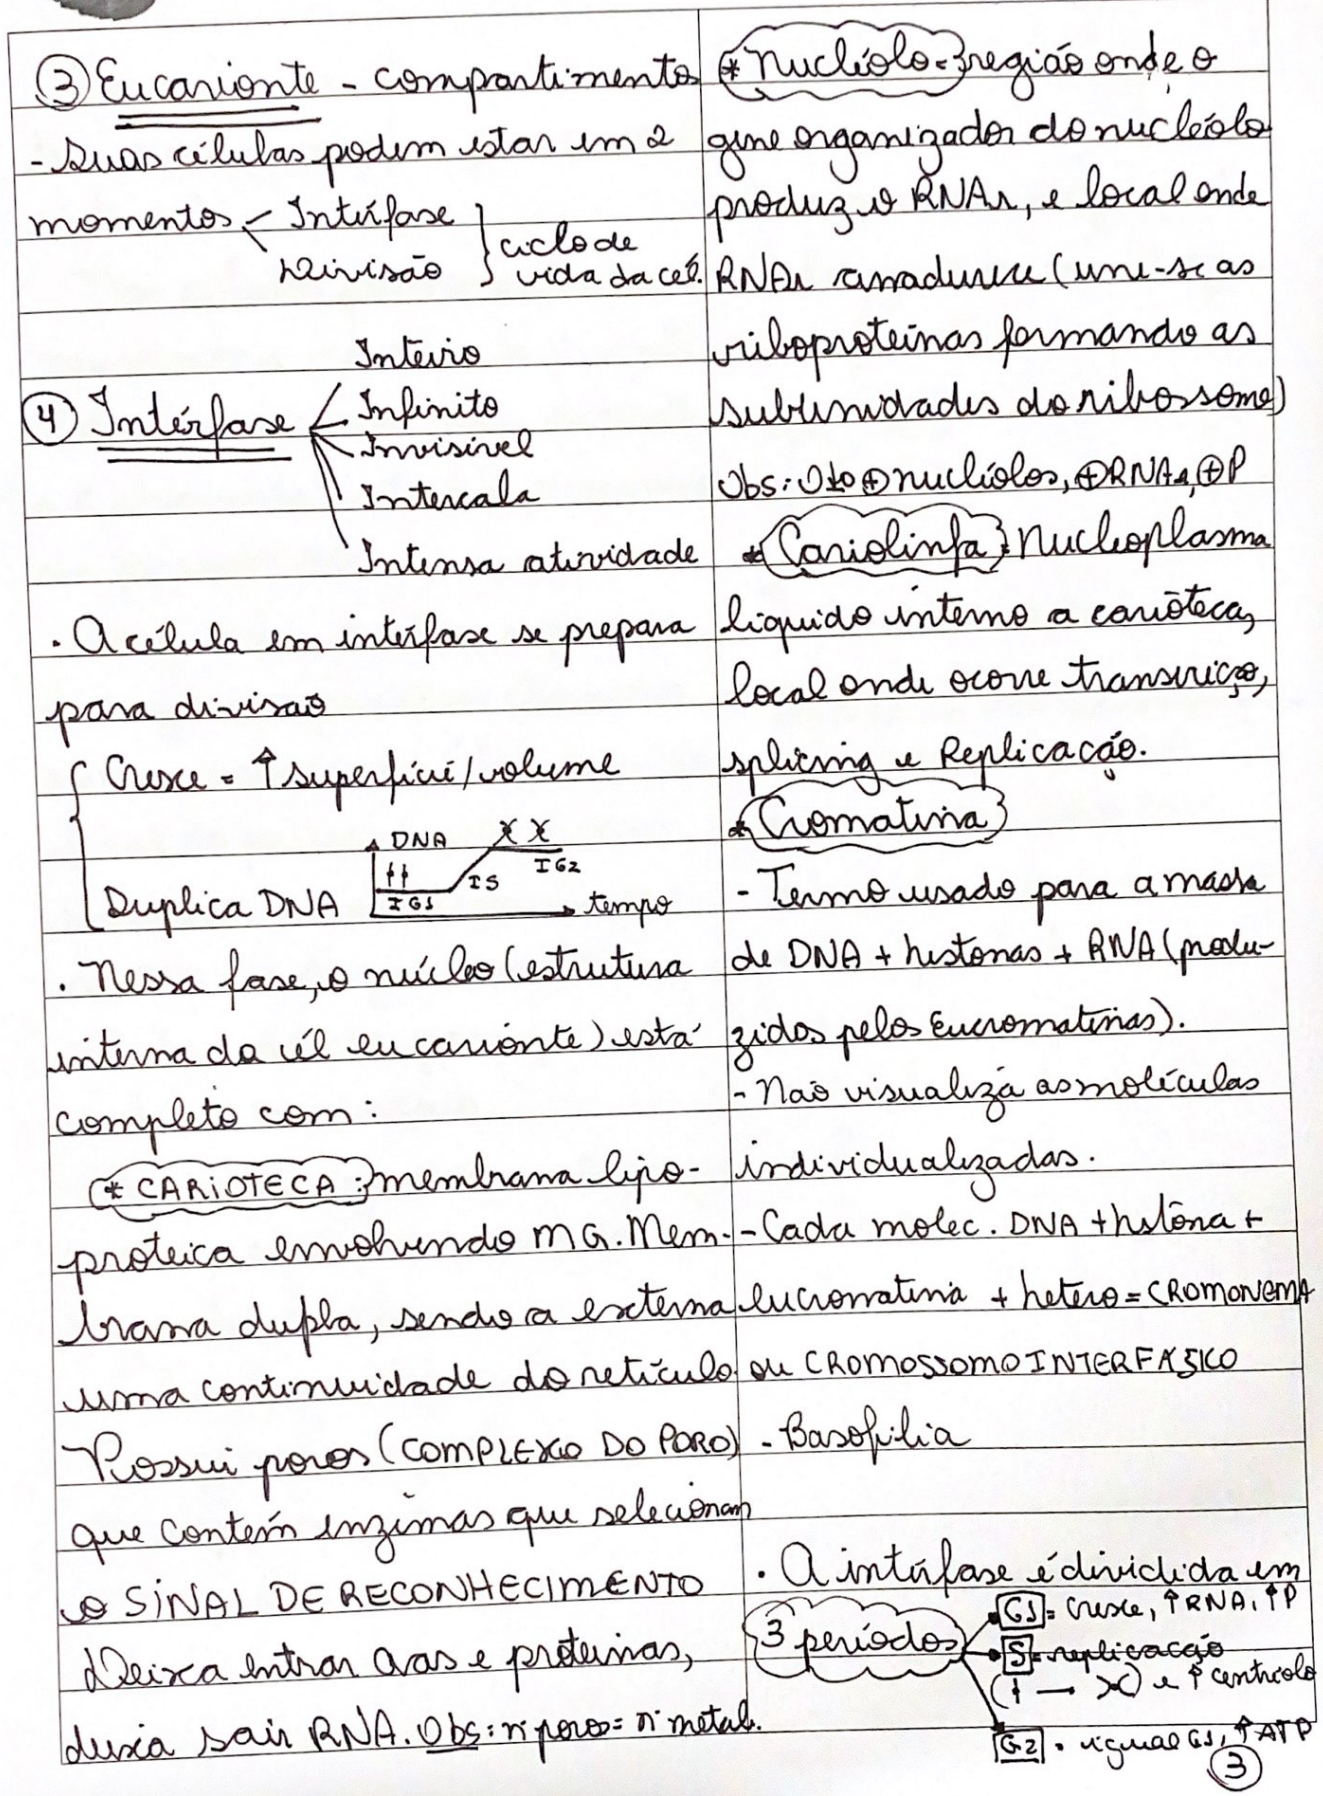 ③ Eucarionte - compartimentos
- Suas células podem estar em 2
momentos - Intérfase
Divisão
ciclo de
vida da cél.
Inteiro
④ Intérfase
Infinito
Invisível
Intercala
Intensa atividade
· A célula em intérfase se prepara
para divisão
Cresce = ↑ superfície/volume
Duplica DNA
DNA
IG1
IS
IG2
tempo
· Nessa fase, o núcleo (estrutura
interna da cél eucarionte) está
completo com:
* CARIOTECA: membrana lipo-
proteica envolvendo MG. Mem-
brana dupla, sendo a externa
uma continuidade do retículo
Possui poros (COMPLEXO DO PORO)
que contém enzimas que selecionam
o SINAL DE RECONHECIMENTO
Deixa entrar aas e proteinas,
deixa sair RNA. Obs: nº poros = nº metab.
* Nucléolo = região onde o
gene organizador do nucléolo
produz o RNAr, e local onde
RNAr amadurece (une-se as
riboproteinas formando as
subunidades do ribossomo)
Obs: ⊕ nucléolos, ⊕ RNAr, ⊕ P
* Cariolinfa: Nucleoplasma
liquido interno a carioteca,
local onde ocorre transcriço,
splicing e Replicação.
* Cromatina
- Termo usado para a massa
de DNA + histonas + RNA (produ-
zidos pelos Eucromatinas).
- Não visualiza as moléculas
individualizadas.
- Cada molec. DNA + histona +
eucromatina + hetero = CROMONEMA
ou CROMOSSOMO INTERFÁSICO
- Basofilia
· A intérfase é dividida em
3 períodos
G1 = cresce, ↑RNA, ↑P
S = replicação
e ↑ centríolo
G2 = igual G1, ↑ATP
③